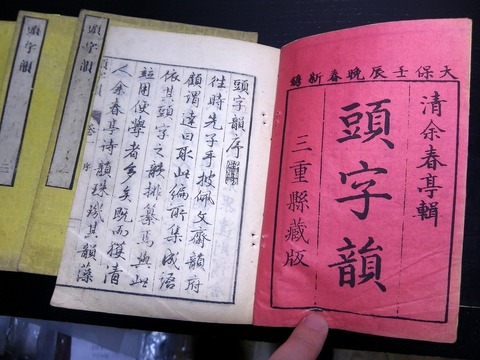 天保壬辰晩春新鐫
清余春亭輯
頭字韻
三重縣藏版
頭字韻序
往時先子手披佩文齋韻府
顧謂達曰取此編所集成語
依其頭字之韻排纂焉與此
竝用便學者多矣既而獲清
人余春亭詩韻珠璣其韻藻
頭字韻
頭字韻 三